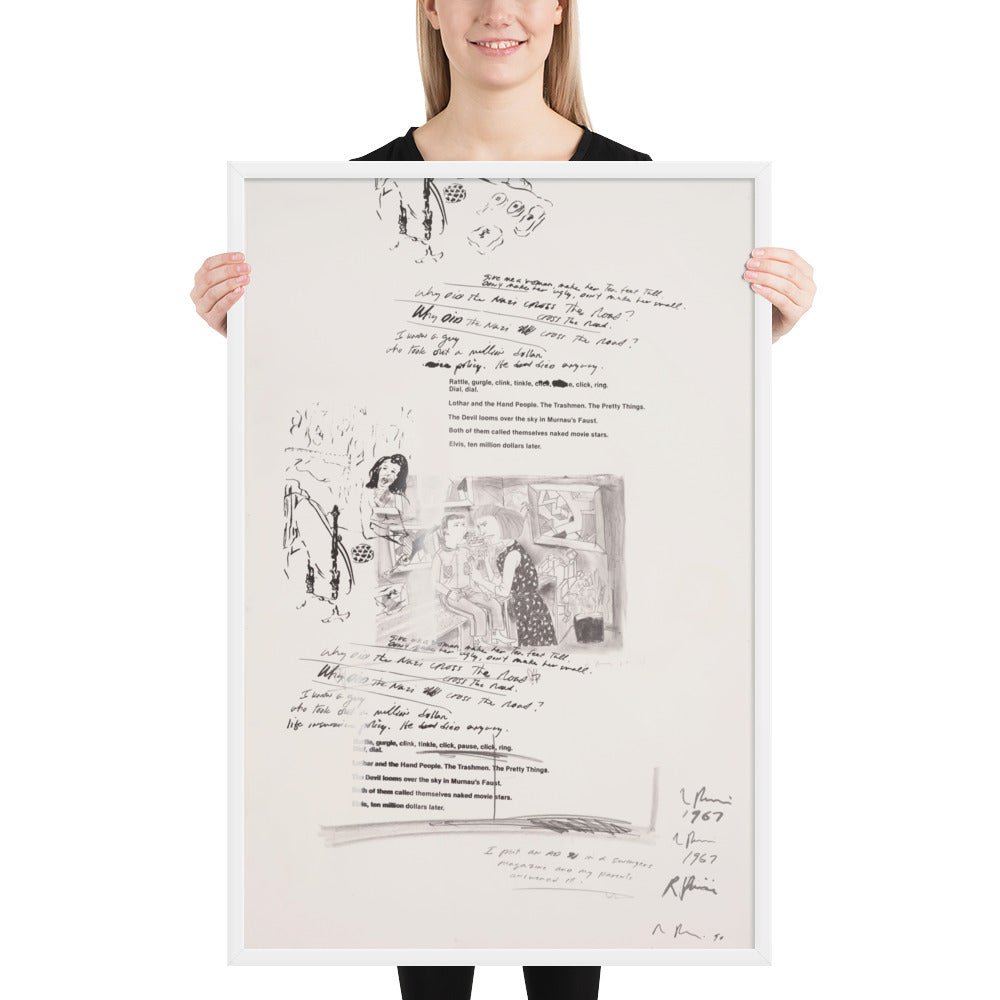 Give me a woman, make her Ten feet Tall
Don't make her ugly, Don't make her small.
Why DID The NAZI CROSS The Road?
CROSS The Road.
Why DID The Nazi CROSS The Road?
I knew a guy
who took out a million dollar
policy. He died anyway.
Rattle, gurgle, clink, tinkle, click, click, ring.
Dial, dial.
Lothar and the Hand People. The Trashmen. The Pretty Things.
The Devil looms over the sky in Murnau's Faust.
Both of them called themselves naked movie stars.
Elvis, ten million dollars later.
Give me a woman, make her Ten feet Tall
Don't make her ugly, Don't make her small.
Why DID The Nazi CROSS The Road?
CROSS The Road.
Why DID The Nazi CROSS The Road?
I knew a guy
who took out a million dollar
life insurance policy. He died anyway.
Rattle, gurgle, clink, tinkle, click, pause, click, ring.
Dial, dial.
Lothar and the Hand People. The Trashmen. The Pretty Things.
The Devil looms over the sky in Murnau's Faust.
Both of them called themselves naked movie stars.
Elvis, ten million dollars later.
1967
1967
I put an AD in a swingers
magazine and my parents
answered it!